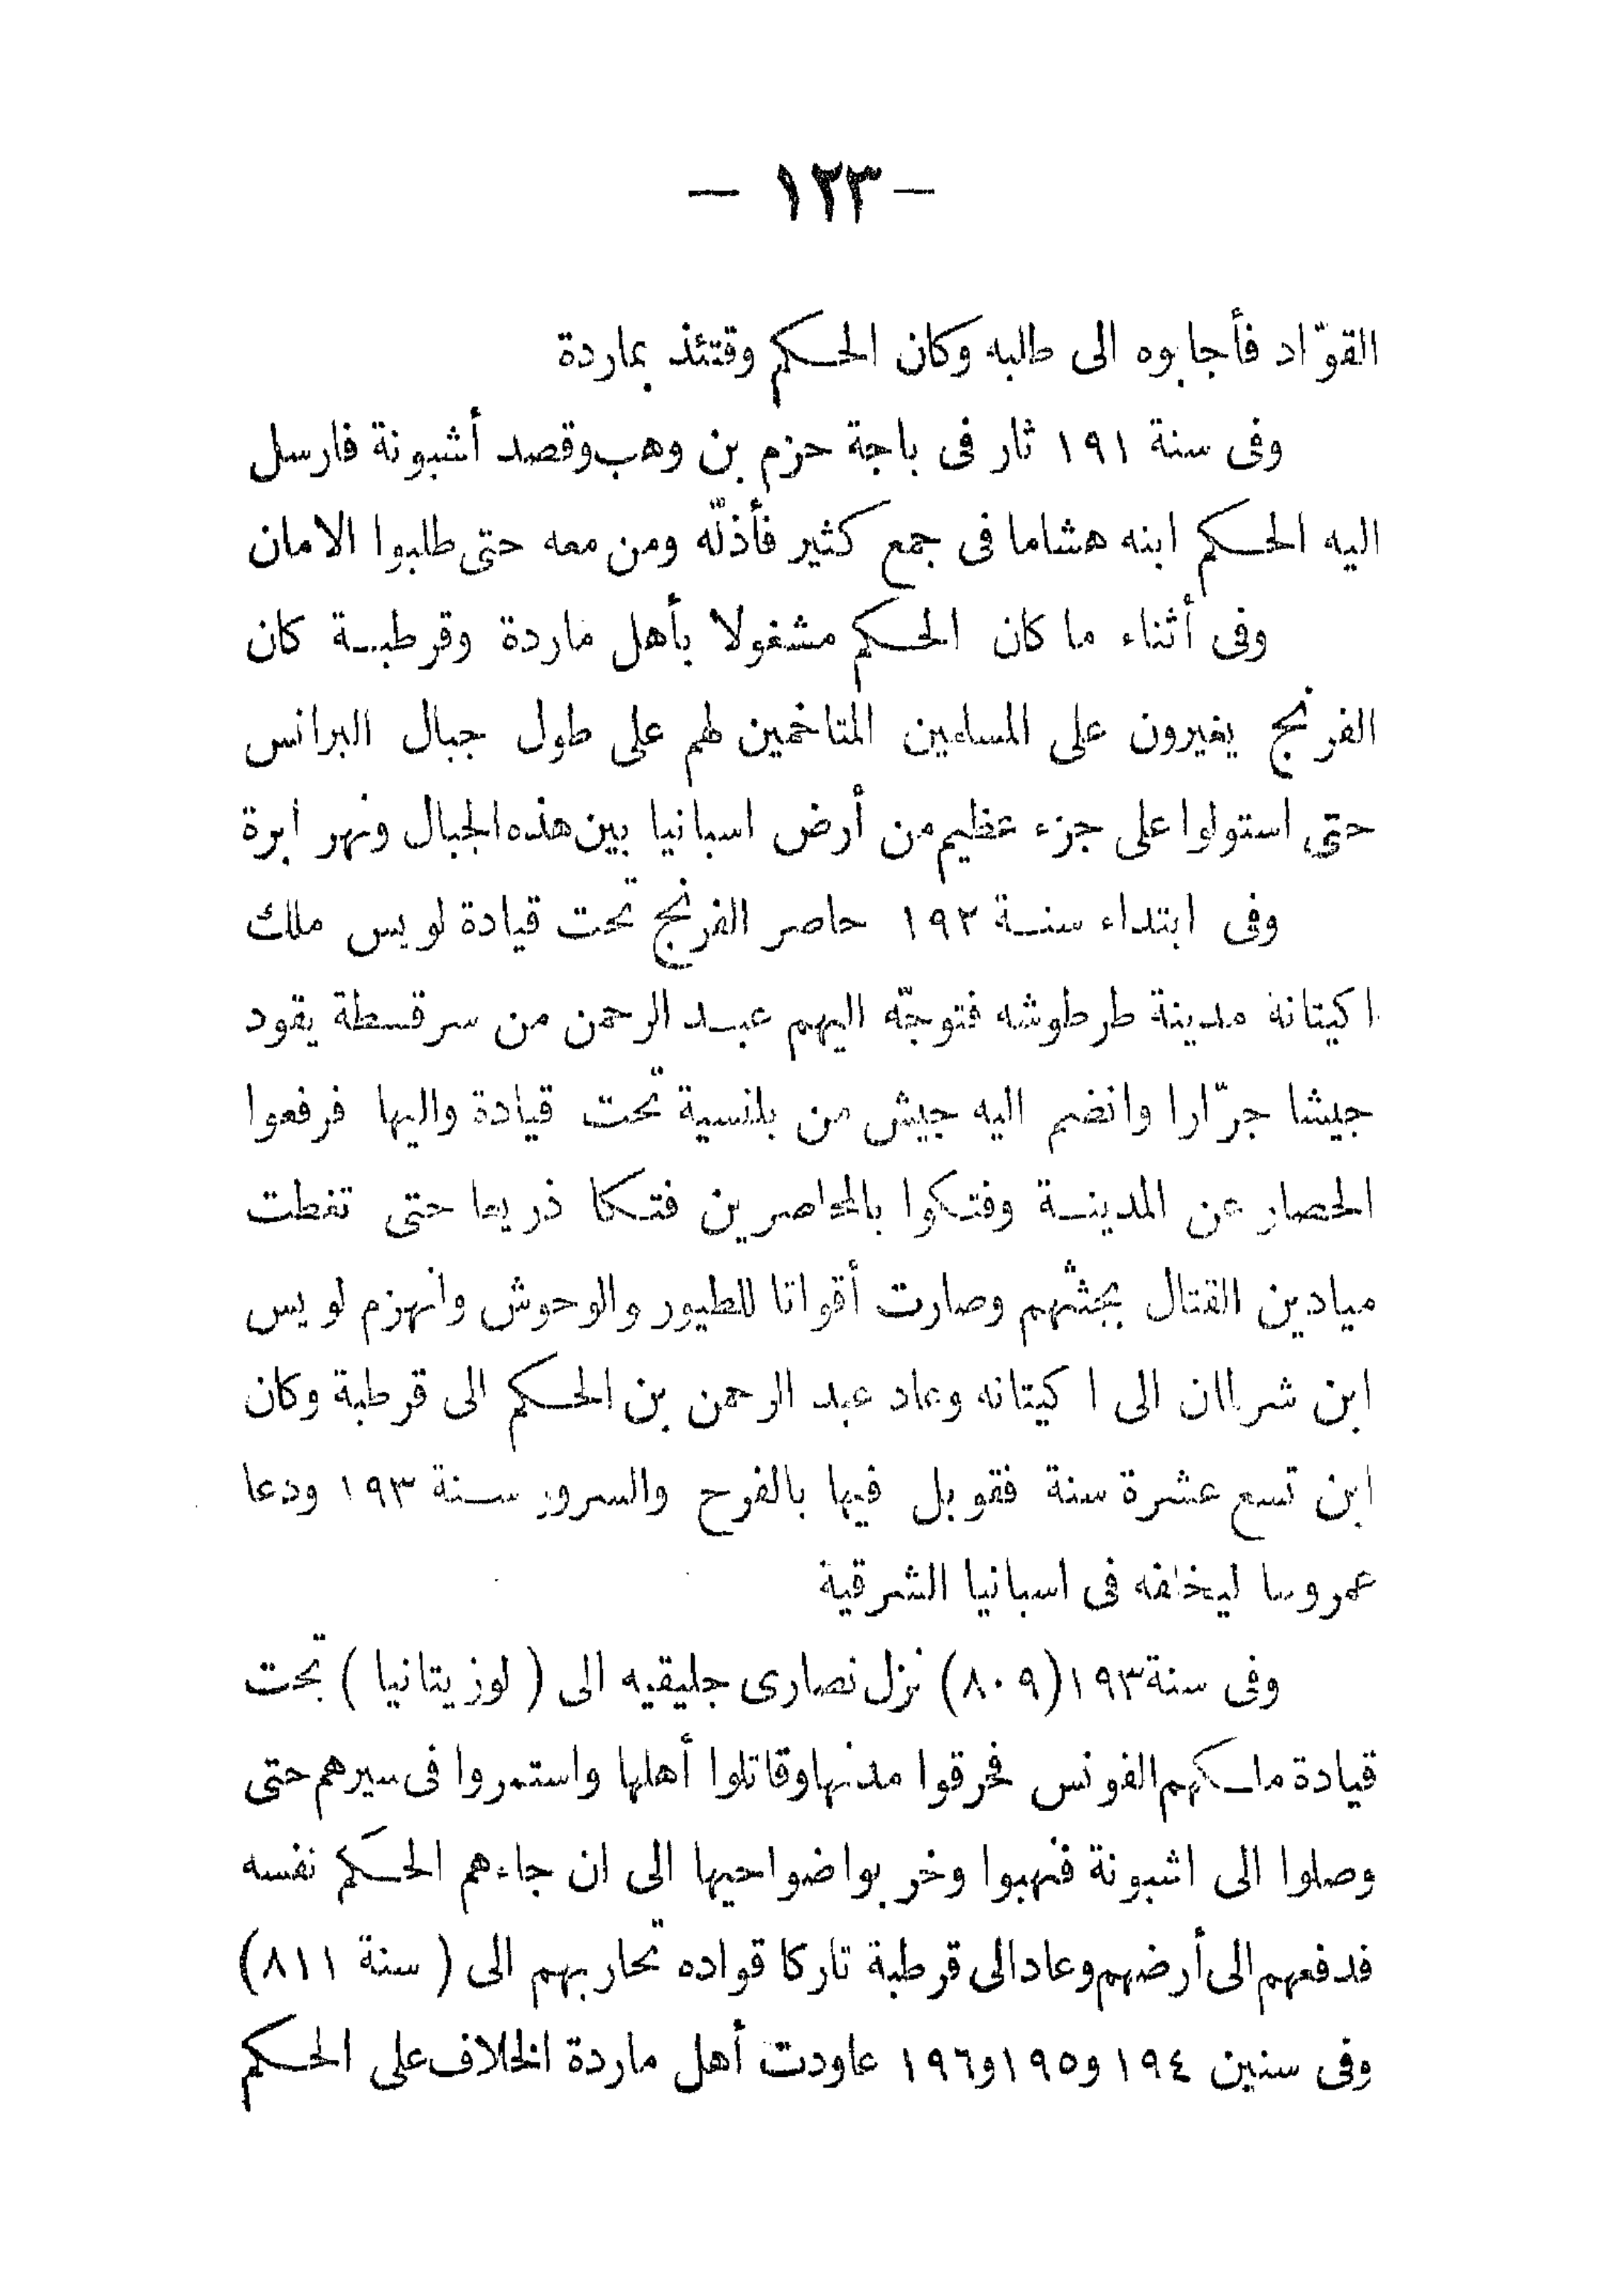 — ١٢٣ —
القوّاد فأجابوه الى طلبه وكان الحكم وقتئذ بماردة
وفى سنة ١٩١ ثار فى باجة حزم بن وهب وقصد أشبونة فارسل
اليه الحكم ابنه هشاما فى جمع كثير فأذلّه ومن معه حتى طلبوا الامان
وفى أثناء ما كان الحكم مشغولا بأهل ماردة وقرطبة كان
الفرنج يغيرون على المسلمين المتاخمين لهم على طول جبال البرانس
حتى استولوا على جزء عظيم من أرض اسبانيا بين هذه الجبال ونهر ابرة
وفى ابتداء سنة ١٩٢ حاصر الفرنج تحت قيادة لويس ملك
اكيتانة مدينة طرطوشه فتوجّه اليهم عبد الرحمن من سرقسطة يقود
جيشا جرّارا وانضم اليه جيش من بلنسية تحت قيادة واليها فرفعوا
الحصار عن المدينة وفتكوا بالمحاصرين فتكا ذريعا حتى تغطت
ميادين القتال بجثثهم وصارت أقواتا للطيور والوحوش وانهزم لويس
ابن شرلمان الى اكيتانه وعاد عبد الرحمن بن الحكم الى قرطبة وكان
ابن تسع عشرة سنة فقوبل فيها بالفرح والسرور سنة ١٩٣ ودعا
عمروسا ليخلفه فى اسبانيا الشرقية
وفى سنة ١٩٣ (٨٠٩) نزل نصارى جليقيه الى ( لوزيتانيا ) تحت
قيادة ملكهم الفونس فحرقوا مدنها وقاتلوا أهلها واستمروا فى سيرهم حتى
وصلوا الى اشبونة فنهبوا وخربوا ضواحيها الى ان جاءهم الحكَم نفسه
فدفعهم الى أرضهم وعاد الى قرطبة تاركا قواده تحاربهم الى ( سنة ٨١١)
وفى سنين ١٩٤ و١٩٥ و١٩٦ عاودت أهل ماردة الخلاف على الحكم